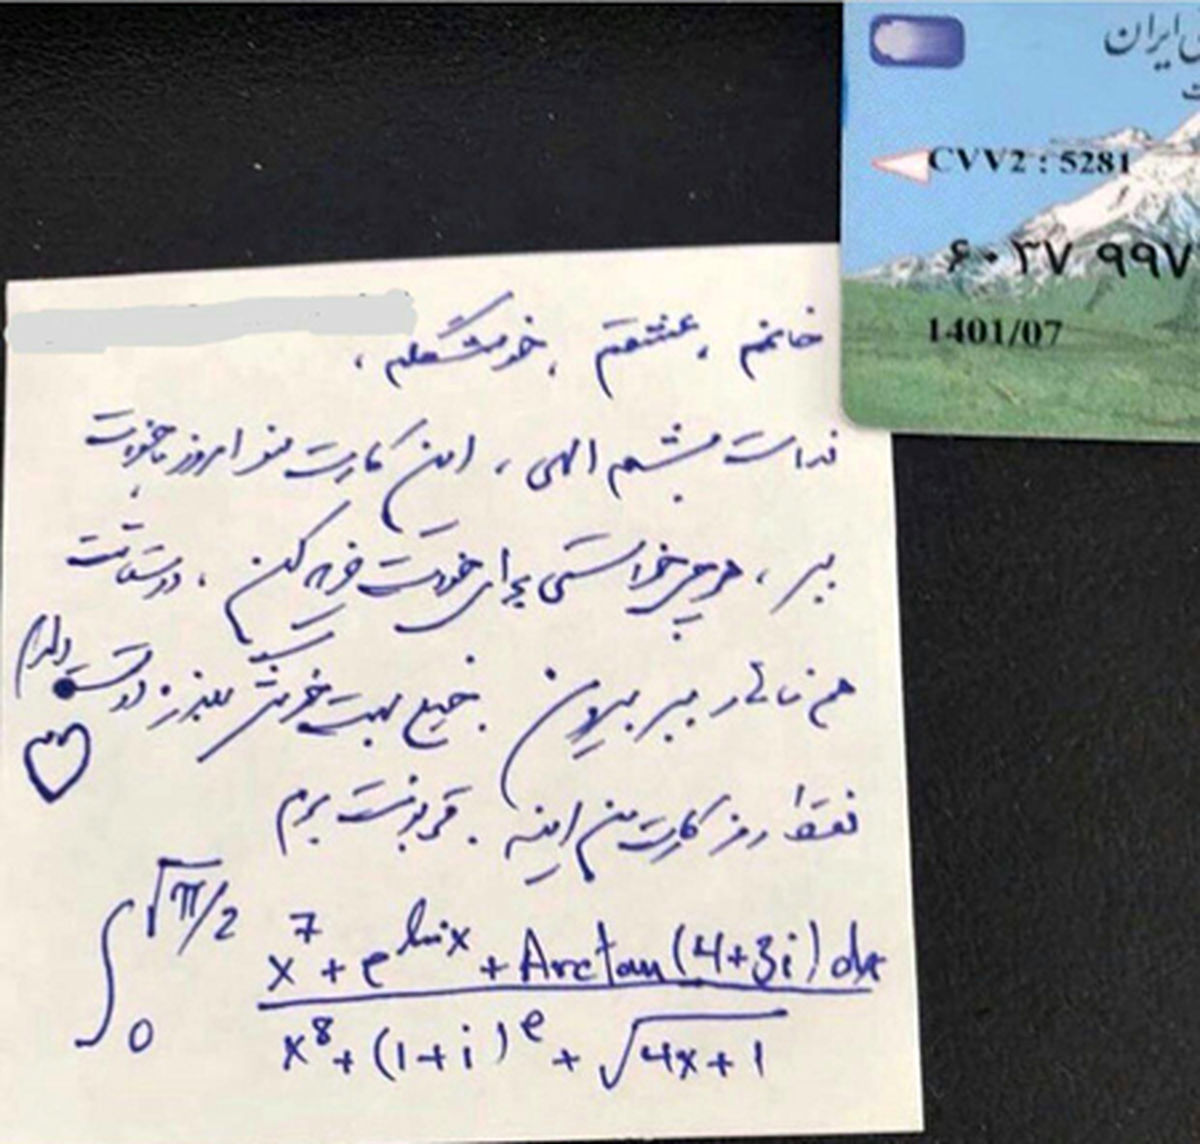 ایران
CVV2 : 5281
۶۰۳۷ ۹۹۷
1401/07
خانمم ، عشقم ، خوشگلم ،
فدات بشم الهی ، این کارت منو امروز با خودت
ببر ، هرچی خواستی برای خودت خرید کن ، دوستات
هم ناهار ببر بیرون . خیلی بهت خوش بگذره دوست دارم
فقط رمز کارت من اینه . قربونت برم
∫₀^{√π/2} (x⁷ + e^{lnx} + Arctan(4+3i) dx) / (x⁸ + (1+i)^e + √(4x+1))